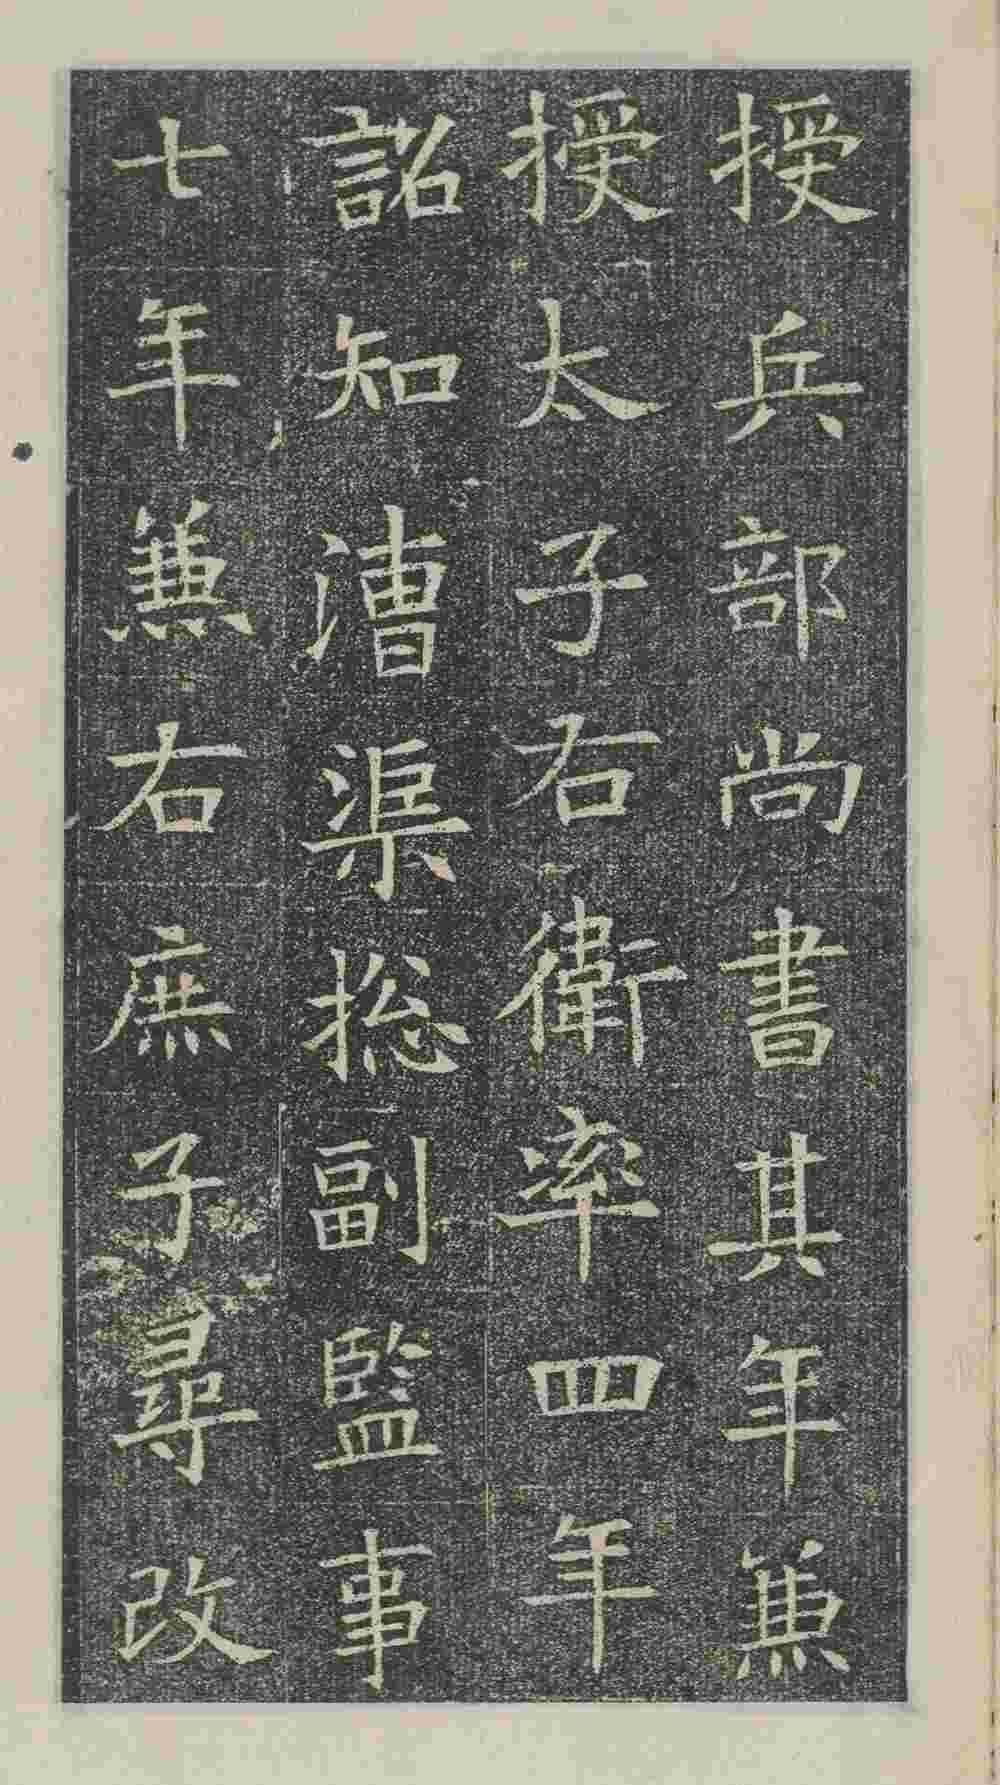 授兵部尚書其年兼
授太子右衛率四年
詔知漕渠捴副監事
七年兼右庶子尋改